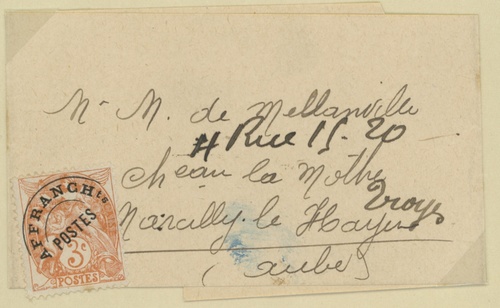 Mr M. de Mellanville
# Rue 15-20
Cheau la Mothe
Troyes
Marcilly-le Hayer
(Aube)
AFFRANCHts
POSTES
3c
POSTES